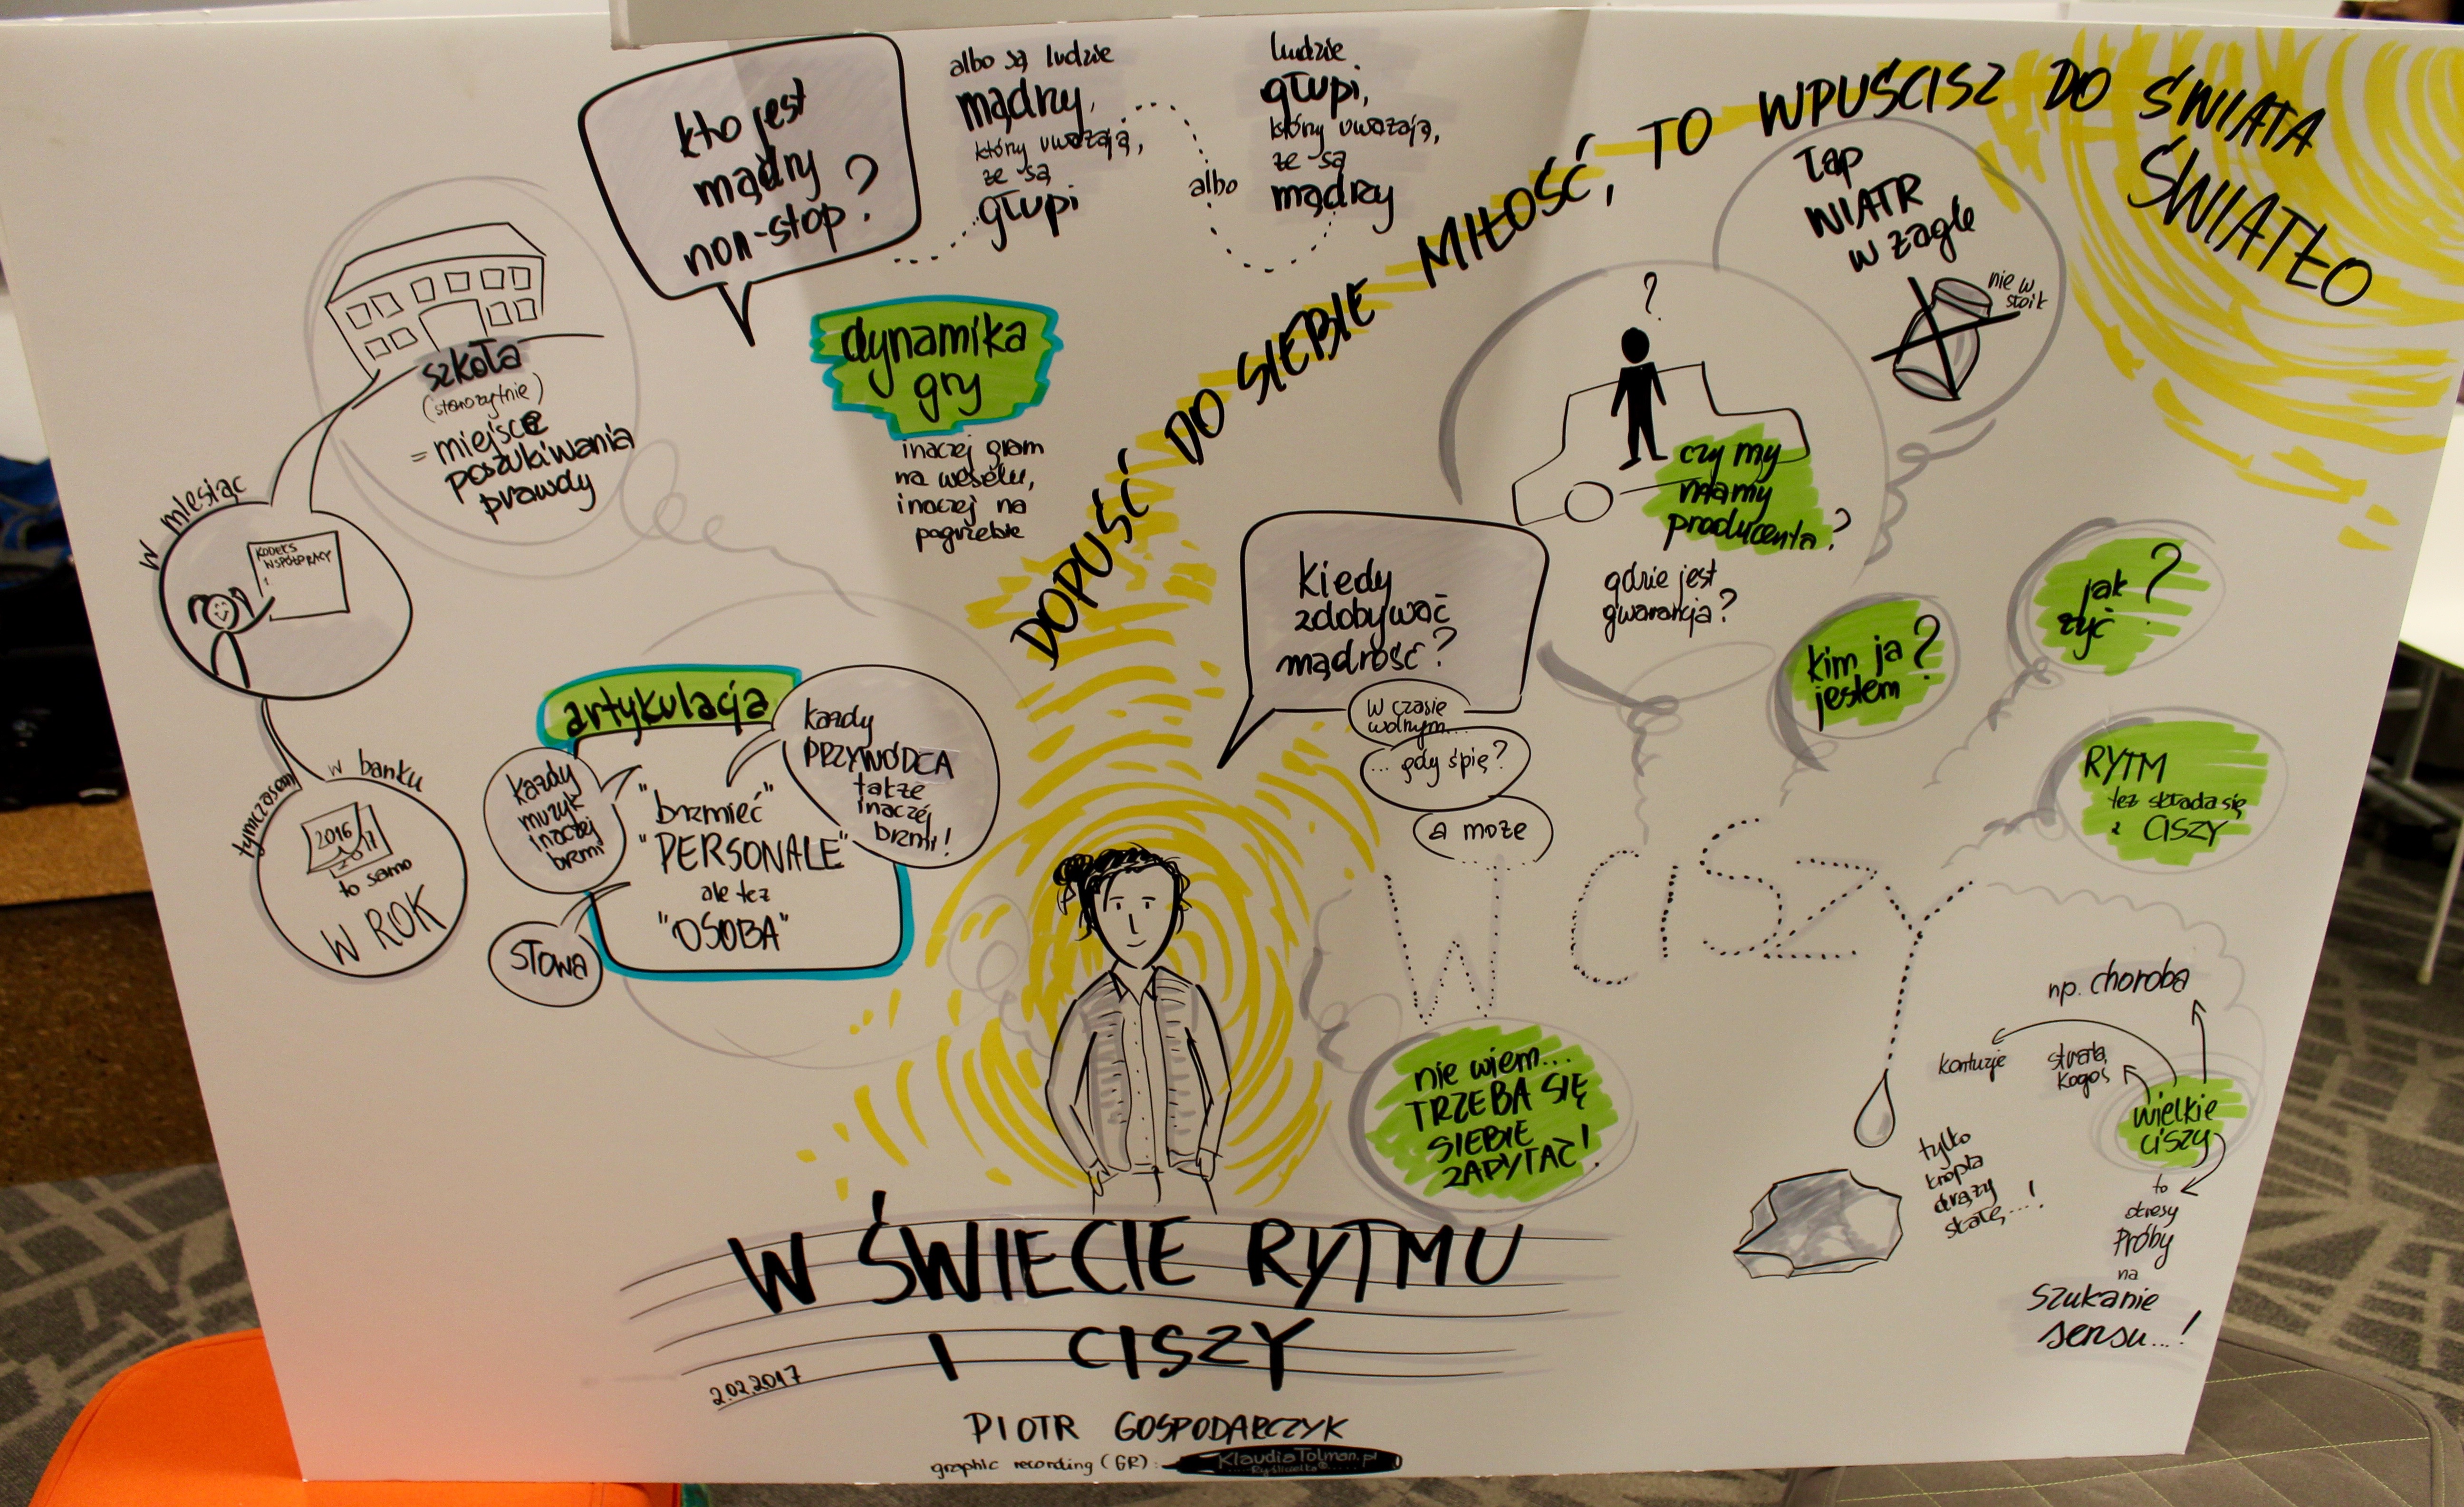 kto jest
mądry
non-stop?
albo są ludzie
mądrzy,
którzy uważają,
że są
głupi
albo
ludzie
głupi,
którzy uważają,
że są
mądrzy
DOPUŚĆ DO SIEBIE MIŁOŚĆ, TO WPUŚCISZ DO ŚWIATA
ŚWIATŁO
łap
WIATR
w żagle
nie w
słoik
szkoła
(starożytnie)
= miejsce
poszukiwania
prawdy
dynamika
gry
inaczej gram
na weselu,
inaczej na
pogrzebie
w miesiąc
KODEKS
WSPÓŁPRACY
tymczasem
w banku
2016
to samo
W ROK
artykulacja
każdy
muzyk
inaczej
brzmi
każdy
PRZYWÓDCA
także
inaczej
brzmi!
"brzmieć"
"PERSONALE"
ale też
"OSOBA"
słowa
?
czy my
mamy
producenta?
gdzie jest
gwarancja?
Kiedy
zdobywać
mądrość?
W czasie
wolnym...
... gdy śpię?
a może
W CISZY
kim ja
jestem?
jak
żyć?
RYTM
też składa się
z CISZY
nie wiem...
TRZEBA SIĘ
SIEBIE
ZAPYTAĆ!
np. choroba
kontuzje
strata
kogoś
wielkie
ciszy
to
okresy
Próby
na
Szukanie
sensu...!
tylko
kropla
drąży
skałę...!
W ŚWIECIE RYTMU
I CISZY
2.02.2017
PIOTR GOSPODARCZYK
graphic recording (GR):
KlaudiaTolman.pl